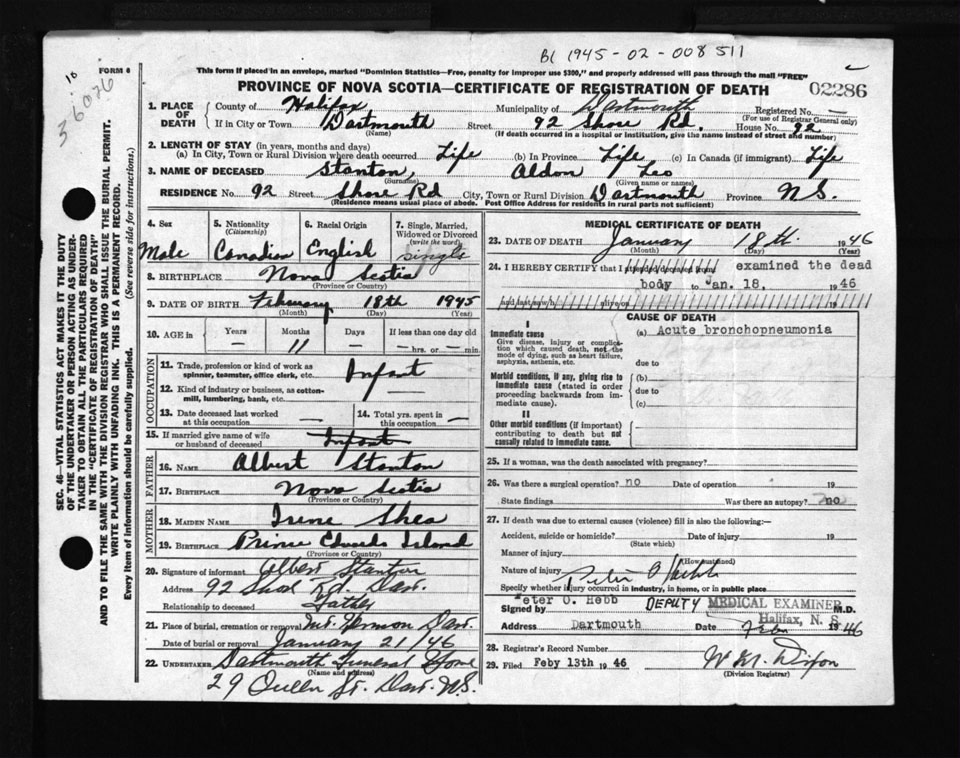 B( 1945-02-008511
10
36076
FORM 6
This form if placed in an envelope, marked "Dominion Statistics—Free, penalty for improper use $300," and properly addressed will pass through the mail "FREE"
PROVINCE OF NOVA SCOTIA—CERTIFICATE OF REGISTRATION OF DEATH
02286
1. PLACE OF DEATH
County of Halifax Municipality of Dartmouth Registered No.
(For use of Registrar General only)
If in City or Town Dartmouth Street 92 Shore Rd. House No. 92
(Name) (If death occurred in a hospital or institution, give the name instead of street and number)
2. LENGTH OF STAY (in years, months and days)
(a) In City, Town or Rural Division where death occurred Life (b) In Province Life (c) In Canada (if immigrant) Life
3. NAME OF DECEASED Stanton, Aldon Leo
(Surname) (Given name or names)
RESIDENCE No. 92 Street Shore Rd City, Town or Rural Division Dartmouth Province N.S.
(Residence means usual place of abode. Post Office Address for residents in rural parts not sufficient)
4. Sex 5. Nationality (Citizenship) 6. Racial Origin 7. Single, Married, Widowed or Divorced (write the word)
Male Canadian English Single
8. BIRTHPLACE Nova Scotia
(Province or Country)
9. DATE OF BIRTH February 18th 1945
(Month) (Day) (Year)
10. AGE in Years Months Days If less than one day old
— 11 — — hrs. or — min.
OCCUPATION
11. Trade, profession or kind of work as spinner, teamster, office clerk, etc. Infant
12. Kind of industry or business, as cotton-mill, lumbering, bank, etc. —
13. Date deceased last worked at this occupation — 14. Total yrs. spent in this occupation —
15. If married give name of wife or husband of deceased Infant
FATHER
16. NAME Albert Stanton
17. BIRTHPLACE Nova Scotia
(Province or Country)
MOTHER
18. MAIDEN NAME Irene Shea
19. BIRTHPLACE Prince Edwards Island
(Province or Country)
20. Signature of informant Albert Stanton
Address 92 Shod Rd. Dar.
Relationship to deceased Father
21. Place of burial, cremation or removal Mt. Hermon Dar.
Date of burial or removal January 21/46
22. UNDERTAKER Dartmouth Funeral Home
(Name and address)
29 Queen St. Dar. N.S.
MEDICAL CERTIFICATE OF DEATH
23. DATE OF DEATH January 18th. 1946
(Month) (Day)
24. I HEREBY CERTIFY that I attended deceased from examined the dead
body to Jan. 18, 1946
and last saw h alive on 19
CAUSE OF DEATH
I
Immediate cause
Give disease, injury or complication which caused death, not the mode of dying, such as heart failure, asphyxia, asthenia, etc.
(a) Acute bronchopneumonia
due to
Morbid conditions, if any, giving rise to immediate cause (stated in order proceeding backwards from immediate cause).
(b)
due to
(c)
II
Other morbid conditions (if important) contributing to death but not causally related to immediate cause.
25. If a woman, was the death associated with pregnancy?
26. Was there a surgical operation? no Date of operation 19
State findings Was there an autopsy? no
27. If death was due to external causes (violence) fill in also the following:—
Accident, suicide or homicide? Date of injury 19
(State which)
Manner of injury
(How sustained)
Nature of injury
Specify whether injury occurred in industry, in home, or in public place
Peter O Hebb
Signed by Peter O. Hebb DEPUTY MEDICAL EXAMINER M.D.
Halifax, N. S.
Address Dartmouth Date Feby 1946
28. Registrar's Record Number
29. Filed Feby 13th 1946 W. M. Dixon
(Division Registrar)
SEC. 46—VITAL STATISTICS ACT MAKES IT THE DUTY OF THE UNDERTAKER OR PERSON ACTING AS UNDERTAKER TO OBTAIN ALL THE PARTICULARS REQUIRED IN THE "CERTIFICATE OF REGISTRATION OF DEATH" AND TO FILE THE SAME WITH THE DIVISION REGISTRAR WHO SHALL ISSUE THE BURIAL PERMIT.
WRITE PLAINLY WITH UNFADING INK. THIS IS A PERMANENT RECORD.
Every item of information should be carefully supplied. (See reverse side for instructions.)